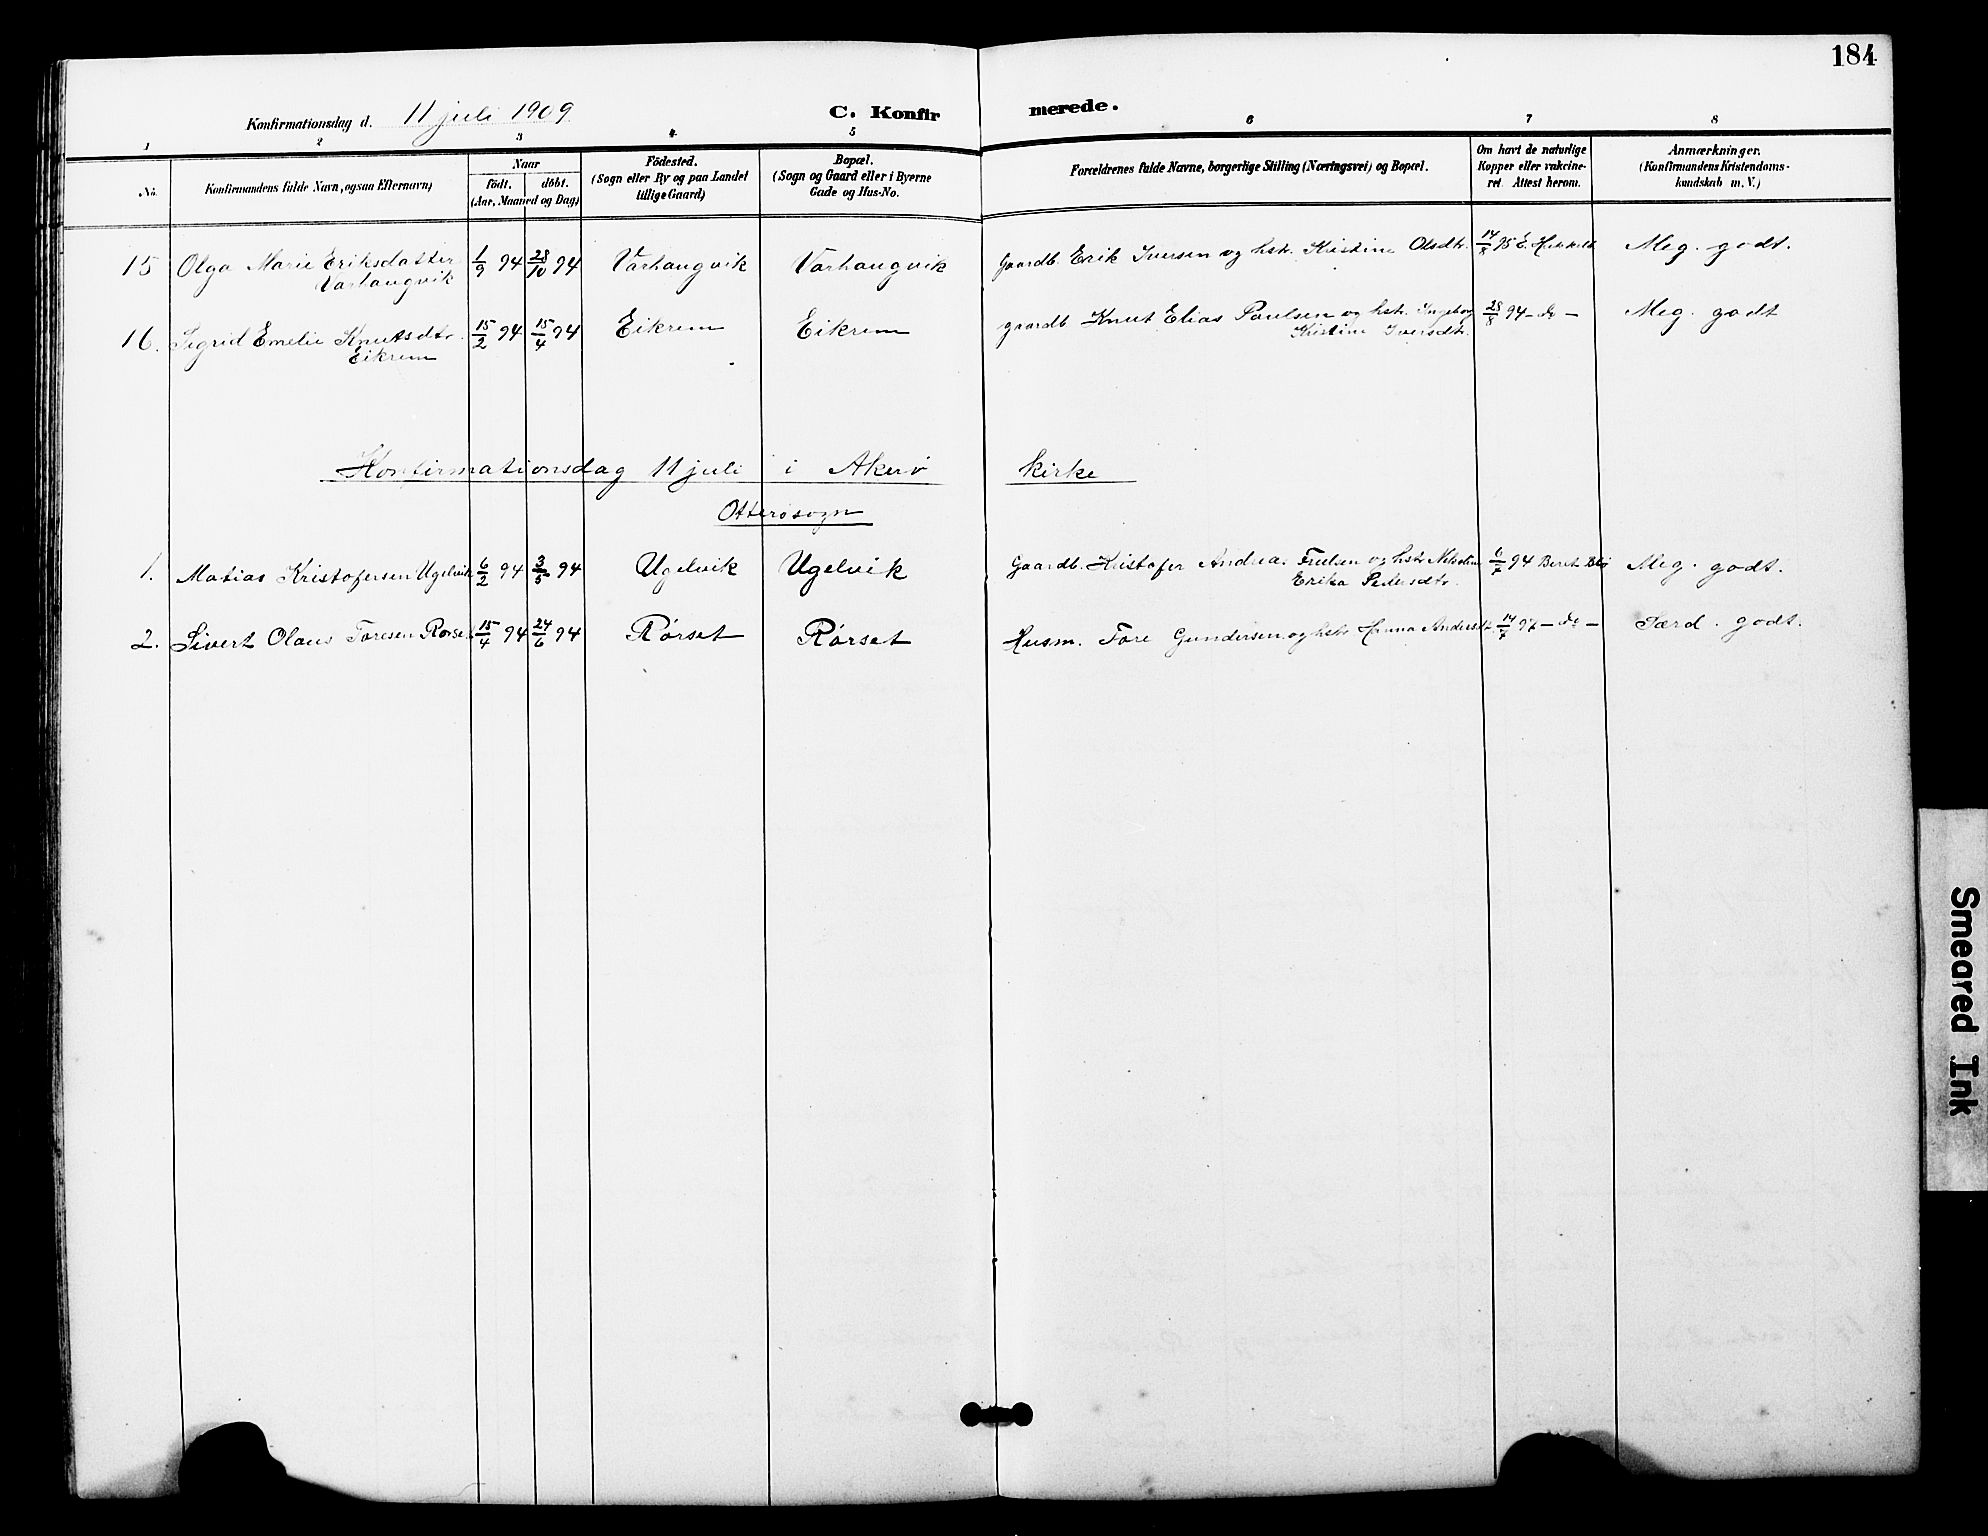 184
Konfirmationsdag d. 11 juli 1909 C. Konfirmerede.
1 2 3 4 5 6 7 8
No. Konfirmandens fulde Navn, ogsaa Efternavn) Naar födt. döbt. (Aar, Maaned og Dag) Födested. (Sogn eller By og paa Landet tillige Gaard) Bopæl. (Sogn og Gaard eller i Byerne Gade og Hus-No. Forældrenes fulde Navne, borgerlige Stilling (Næringsvei) og Bopæl. Om havt de naturlige Kopper eller vakcineret Attest herom. Anmærkninger. (Konfirmandens Kristendomskundskab m. V.)
15 Olga Marie Eriksdatter 1/9 94 28/10 94 Varhaugvik Varhaugvik Gaardb. Erik Iversen og hstr. Kristine Olsdtr. 14/8 95 E. Meg. godt.
Varhaugvik
16. Sigrid Emelie Knutsdtr. 15/2 94 15/4 94 Eikrem Eikrem gaardb. Knut Elias Paulsen og hstr. Ingeborg 28/8 94 – do – Meg. godt
Eikrem Kristine Iversdtr.
Konfirmationsdag 11 juli i Akerö kirke
Otterösogn
1. Matias Kristofersen Ugelvik 6/2 94 3/5 94 Ugelvik Ugelvik Gaardb. Kristofer Andrea. og hstr. 6/7 94 Beret Meg. godt.
Erika Pedersdtr.
2. Sivert Olaus Toresen Rörset 15/4 94 24/6 94 Rörset Rörset Husm. Tore Gundersen og hstr. Hanna Andersdt. 14/7 97 – do – Særd. godt.
Smeared Ink